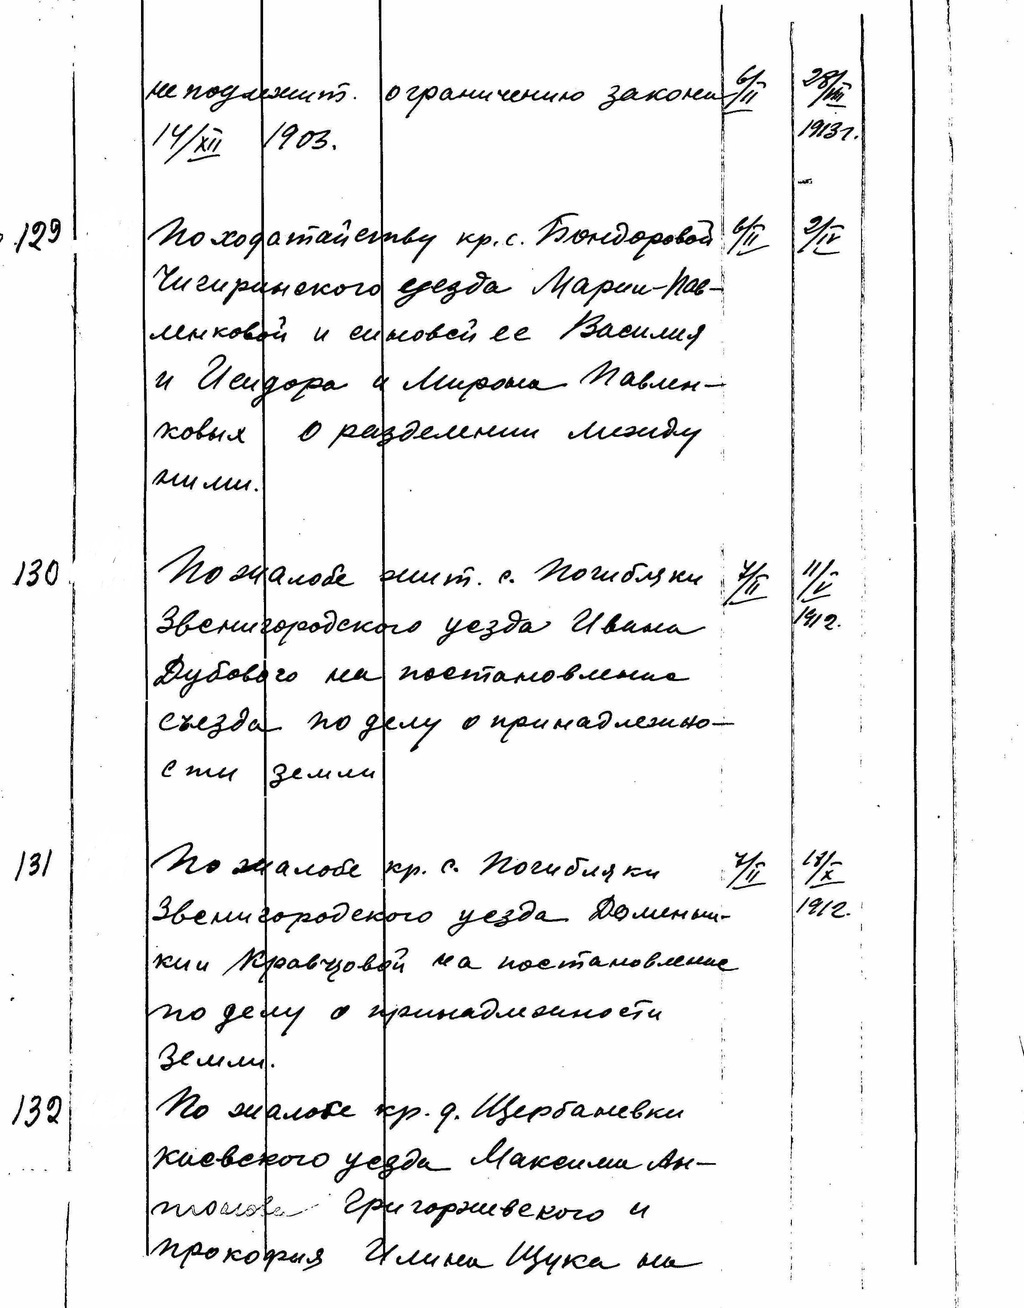 не подлежит. ограничению закона 6/II 28/VIII
14/XII 1903. 1913г.
129 По ходатайству кр. с. Бондоровой 6/II 2/IV
Чигиринского уезда Марии Пав-
ленковой и синовей ее Василия
и Исидора и Мирона Павлен-
ковых о разделении между
ними.
130 По жалобе жит. с. Погибляки 7/II 11/V
Звенигородского уезда Ивана 1912.
Дубового на постановление
съезда по делу о принадлежно-
сти земли
131 По жалобе кр. с. Погибляки 7/II 17/X
Звенигородского уезда Доменьи- 1912.
кии Кравцовой на постановление
по делу о принадлежности
земли.
132 По жалобе кр. д. Щербаневки
киевского уезда Максима Ан-
тонова Григоржевского и
прокофия Илина Щука на